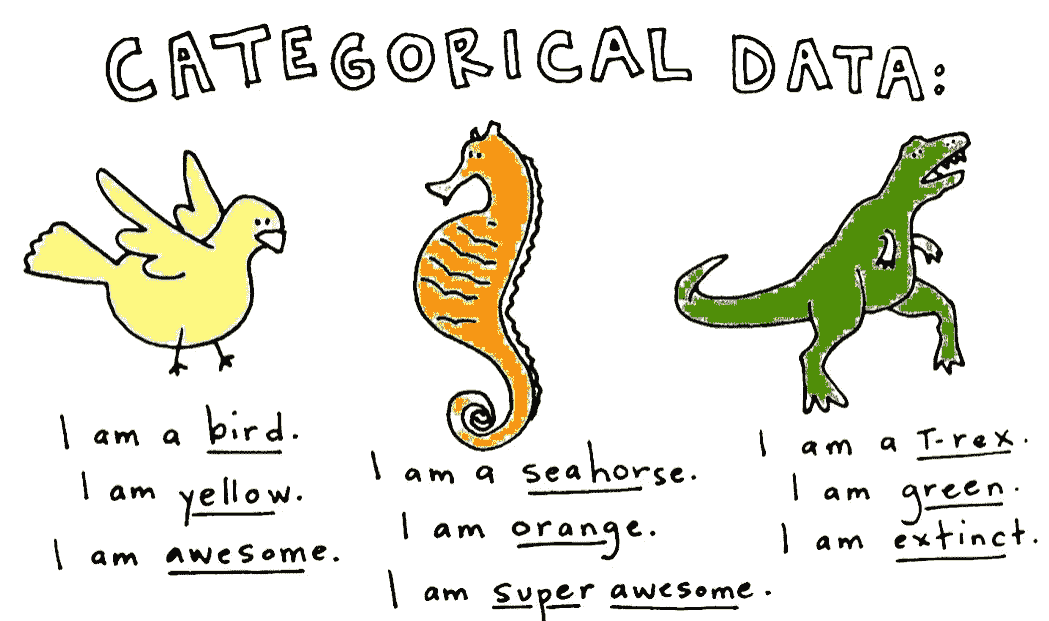 CATEGORICAL DATA:
I am a bird.
I am yellow.
I am awesome.
I am a seahorse.
I am orange.
I am super awesome.
I am a T-rex.
I am green.
I am extinct.